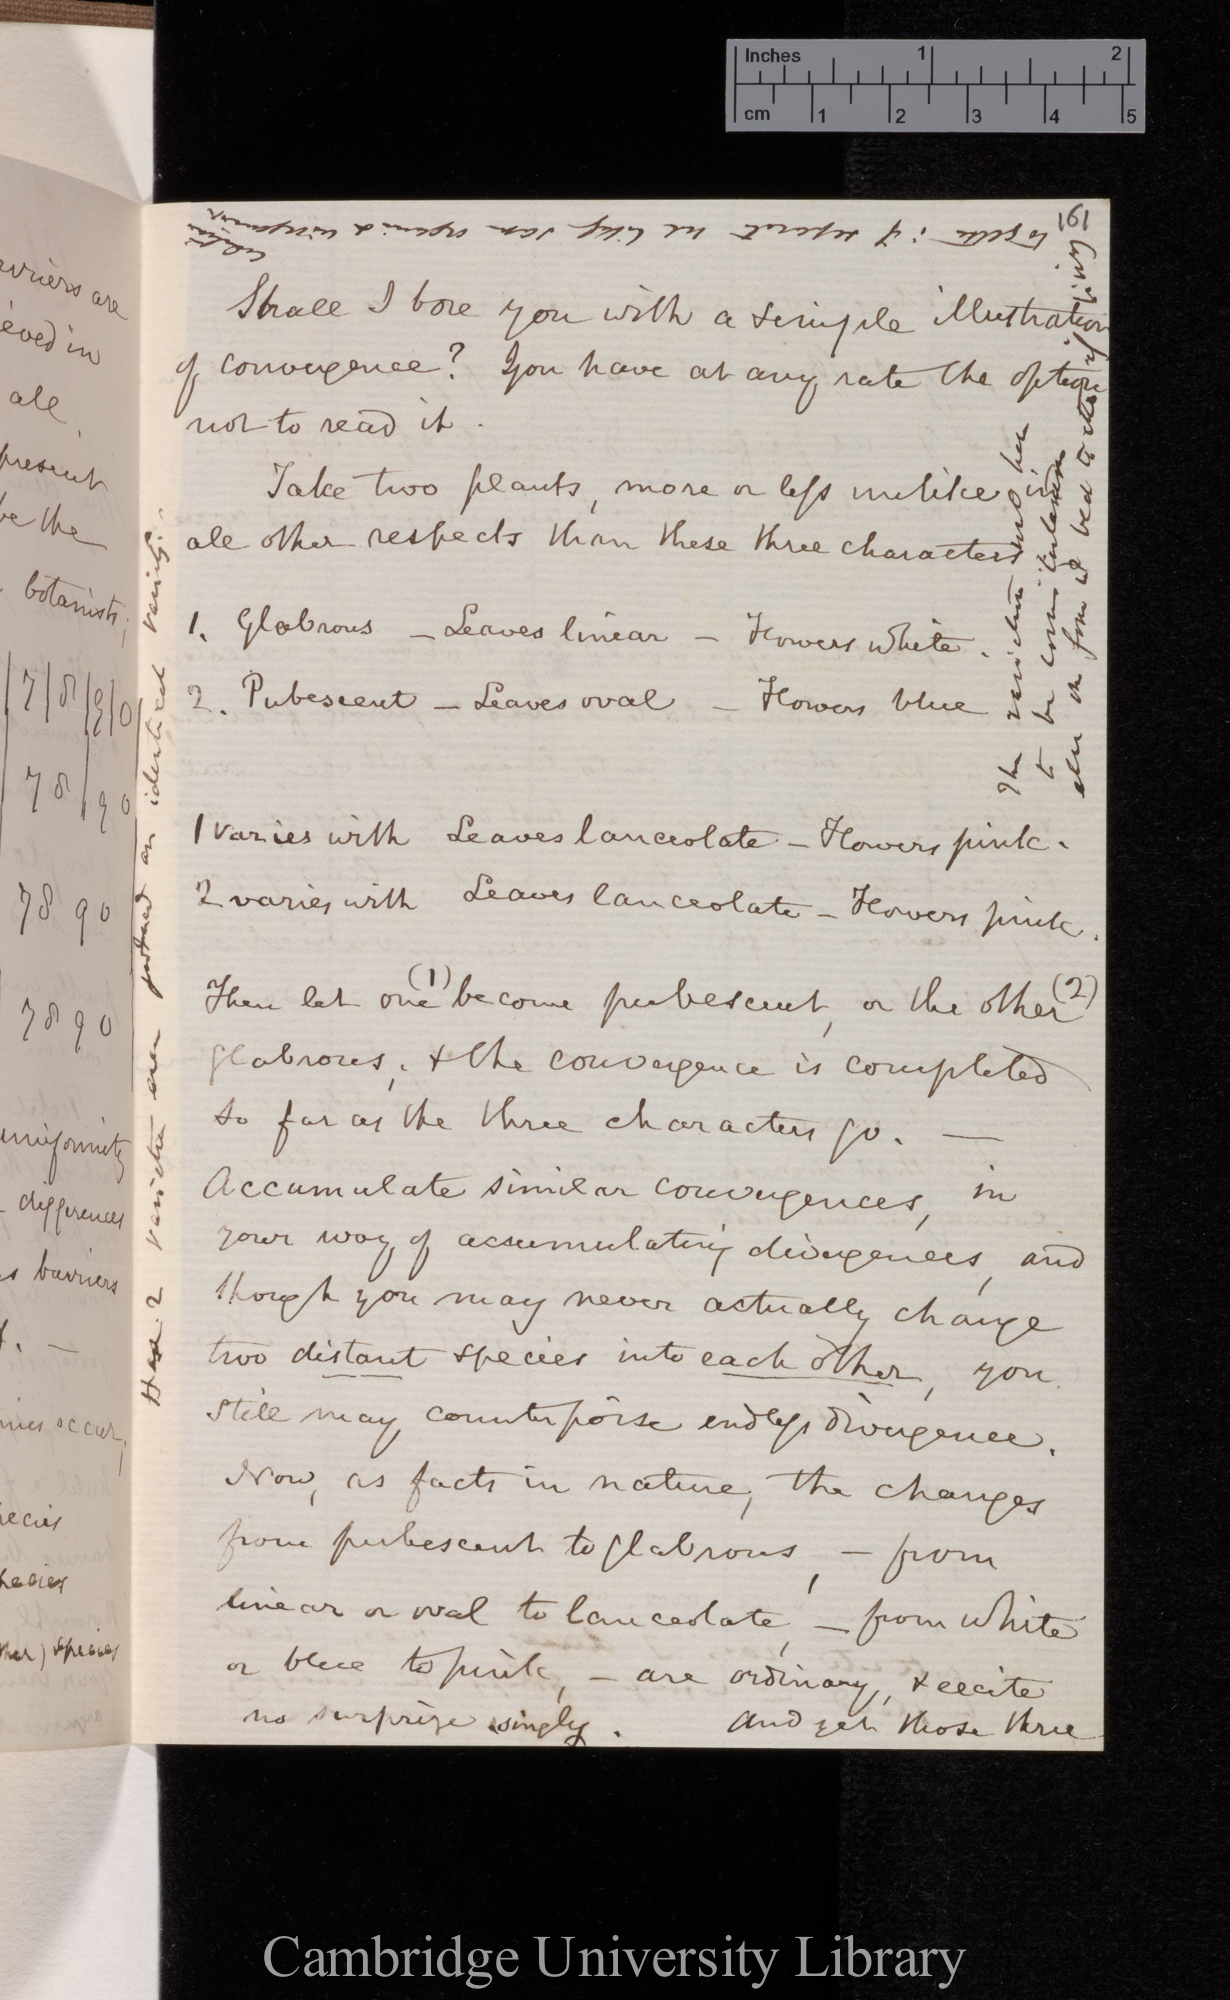 Inches 1 2
cm 1 2 3 4 5
161
Shall I bore you with a simple illustration
of convergence? You have at any rate the option
not to read it.
Take two plants, more or less unlike in
all other respects than these three characters
1. Glabrous – Leaves linear – Flowers white.
2. Pubescent – Leaves oval – Flowers blue
1 varies with Leaves lanceolate – Flowers pink.
2 varies with Leaves lanceolate – Flowers pink.
Then let one (1) become pubescent, or the other (2)
glabrous, & the convergence is completed
so far as the three characters go. —
Accumulate similar convergences, in
your way of accumulating divergences, and
though you may never actually change
two distant species into each other, you
still may counterpoise endless divergence.
Now, as facts in nature, the changes
from pubescent to glabrous, – from
linear or oval to lanceolate, – from white
or blue to pink, – are ordinary, & excite
no surprize singly. And yet those three
Have 2 varieties ever produced an identical variety.
The varieties must be
to be
together: if separate
arriers are
ieved in
all
present
be the
botanists;
7 8 9 0
7 8 9 0
7 8 9 0
7 8 9 0
uniformity
differences
as barriers
occur;
ecies
species
ther) species
Cambridge University Library